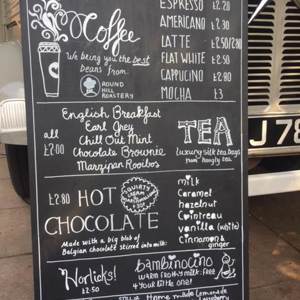 ESPRESSO
Coffee
AMERICANO £2.30
LATTE £2.50/2.80
We bring you the best
beans from...
FLAT WHITE £2.50
ROUND
HILL
ROASTERY
CAPPUCINO £2.80
MOCHA £3
English Breakfast
Earl Grey
all
£2.00
Chill Out Mint
Chocolate Brownie
Marzipan Rooibos
TEA
luxury silk tea bags
£2.80 HOT
CHOCOLATE
Made with a big blob of
Belgian chocolate stirred into milk:
milk
Caramel
hazelnut
Cointreau
vanilla (white)
Cinnamon &
ginger
Norlicks!
£2.50
bambinocino
warm frothy milk: free
4 your little one!
Home made Lemonade
J 78